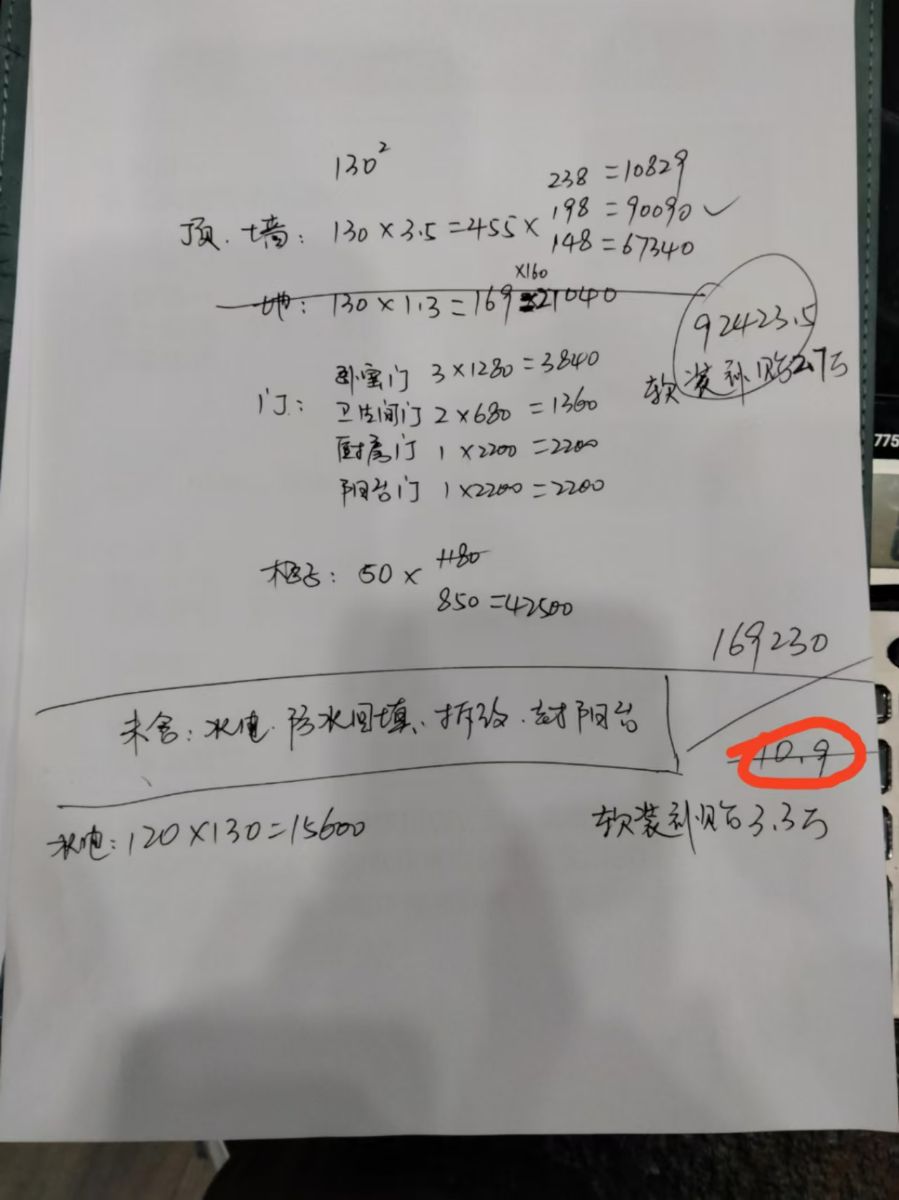 130²
238 =10829
顶.墙: 130×3.5=455× 198 =90090 ✓
148 =67340
×160
地: 130×1.3=169 21040
92423.5
软装补贴2.7万
卧室门 3×1280=3840
门: 卫生间门 2×680=1360
厨房门 1×2200=2200
阳台门 1×2200=2200
柜子: 50× 1180
850=42500
169230
未含:水电.防水回填.拆改.封阳台
10.9
水电:120×130=15600
软装补贴3.3万
775